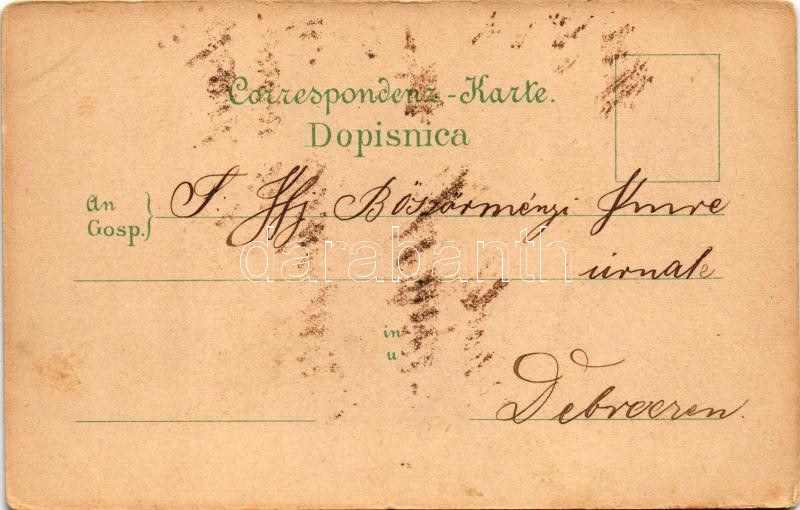 Correspondenz-Karte.
Dopisnica
An
Gosp.
T. Ifj. Böszörményi Imre
darabanth
úrnak
in
u
Debreczen.